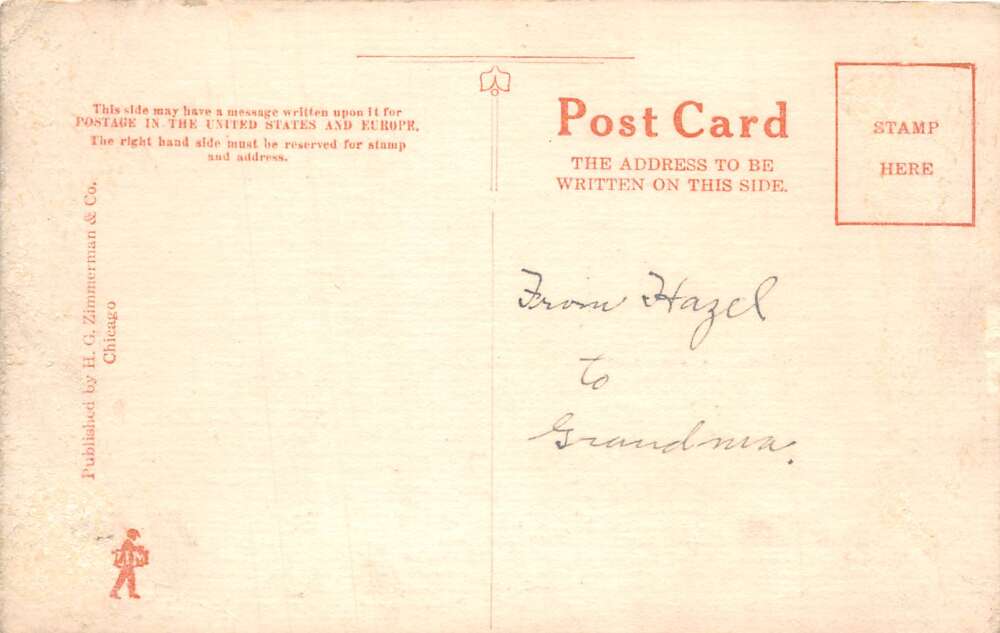 This side may have a message written upon it for
POSTAGE IN THE UNITED STATES AND EUROPE.
The right hand side must be reserved for stamp
and address.
Post Card
THE ADDRESS TO BE
WRITTEN ON THIS SIDE.
STAMP
HERE
Published by H. G. Zimmerman & Co.
Chicago
From Hazel
to
Grandma.
ZIM